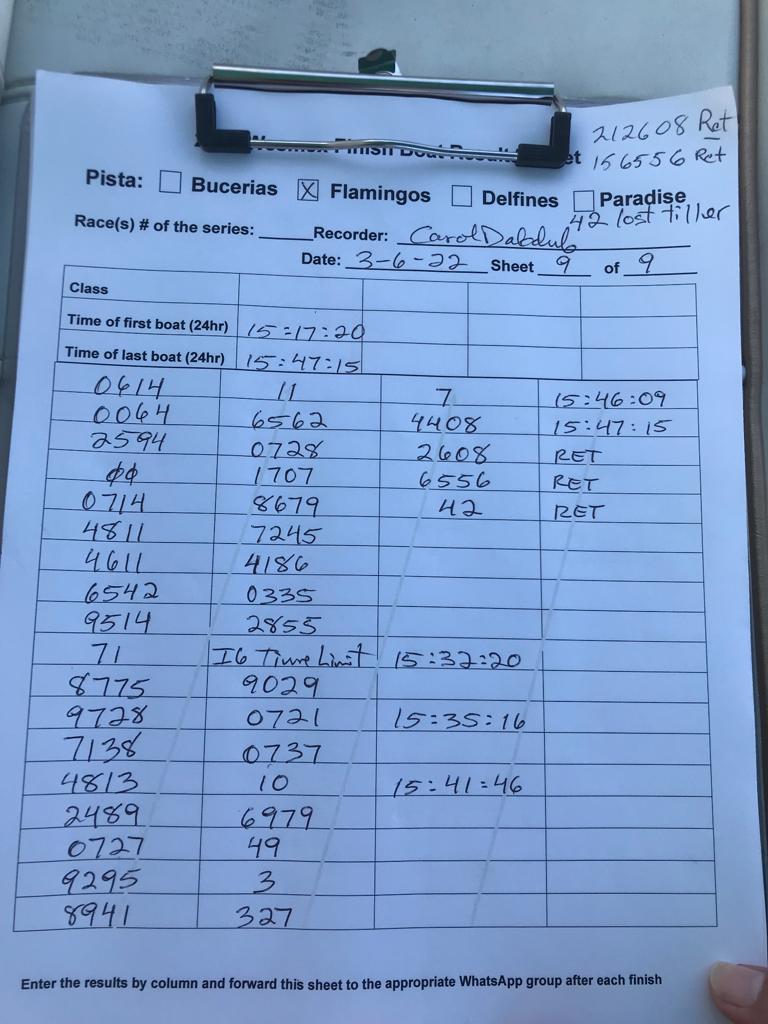 212608 Ret
156556 Ret
Finish Boat Result
et
Pista: Bucerias X Flamingos Delfines Paradise
42 lost tiller
Race(s) # of the series: Recorder: Carol Dabdub
Date: 3-6-22 Sheet 9 of 9
Class
Time of first boat (24hr) 15:17:20
Time of last boat (24hr) 15:47:15
0614 11 7 15:46:09
0064 6562 4408 15:47:15
2594 0728 2608 RET
φφ 1707 6556 RET
0714 8679 42 RET
4811 7245
4611 4186
6542 0335
9514 2855
71 I6 Time Limit 15:32:20
8775 9029
9728 0721 15:35:16
7138 0737
4813 10 15:41:46
2489 6979
0727 49
9295 3
8941 327
Enter the results by column and forward this sheet to the appropriate WhatsApp group after each finish